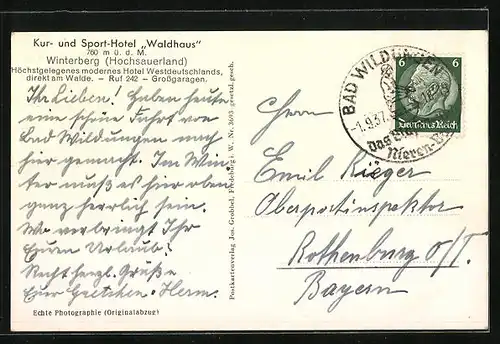 Kur- und Sport-Hotel „Waldhaus"
760 m ü. d. M.
Winterberg (Hochsauerland)
Höchstgelegenes modernes Hotel Westdeutschlands,
direkt am Walde. - Ruf 242 - Großgaragen.
Ihr Lieben! Haben heute
eine schöne Fahrt von
Bad Wildungen nach
hier gemacht. Im Win-
ter muß es hier oben
ganz herrlich sein.
Wo verbringt Ihr
Euren Urlaub?
Recht herzl. Grüße
Eure Gretchen - Herm.
Echte Photographie (Originalabzug)
Postkartenverlag Jos. Grobbel, Fredeburg i. W. Nr. 3693 gesetzl. gesch.
BAD WILDUNGEN
-1.9.37
Das
Nieren-
6 6
Deutsches Reich
Herrn
Emil Rieger
Oberpostinspektor
Rothenburg o/T.
Bayern